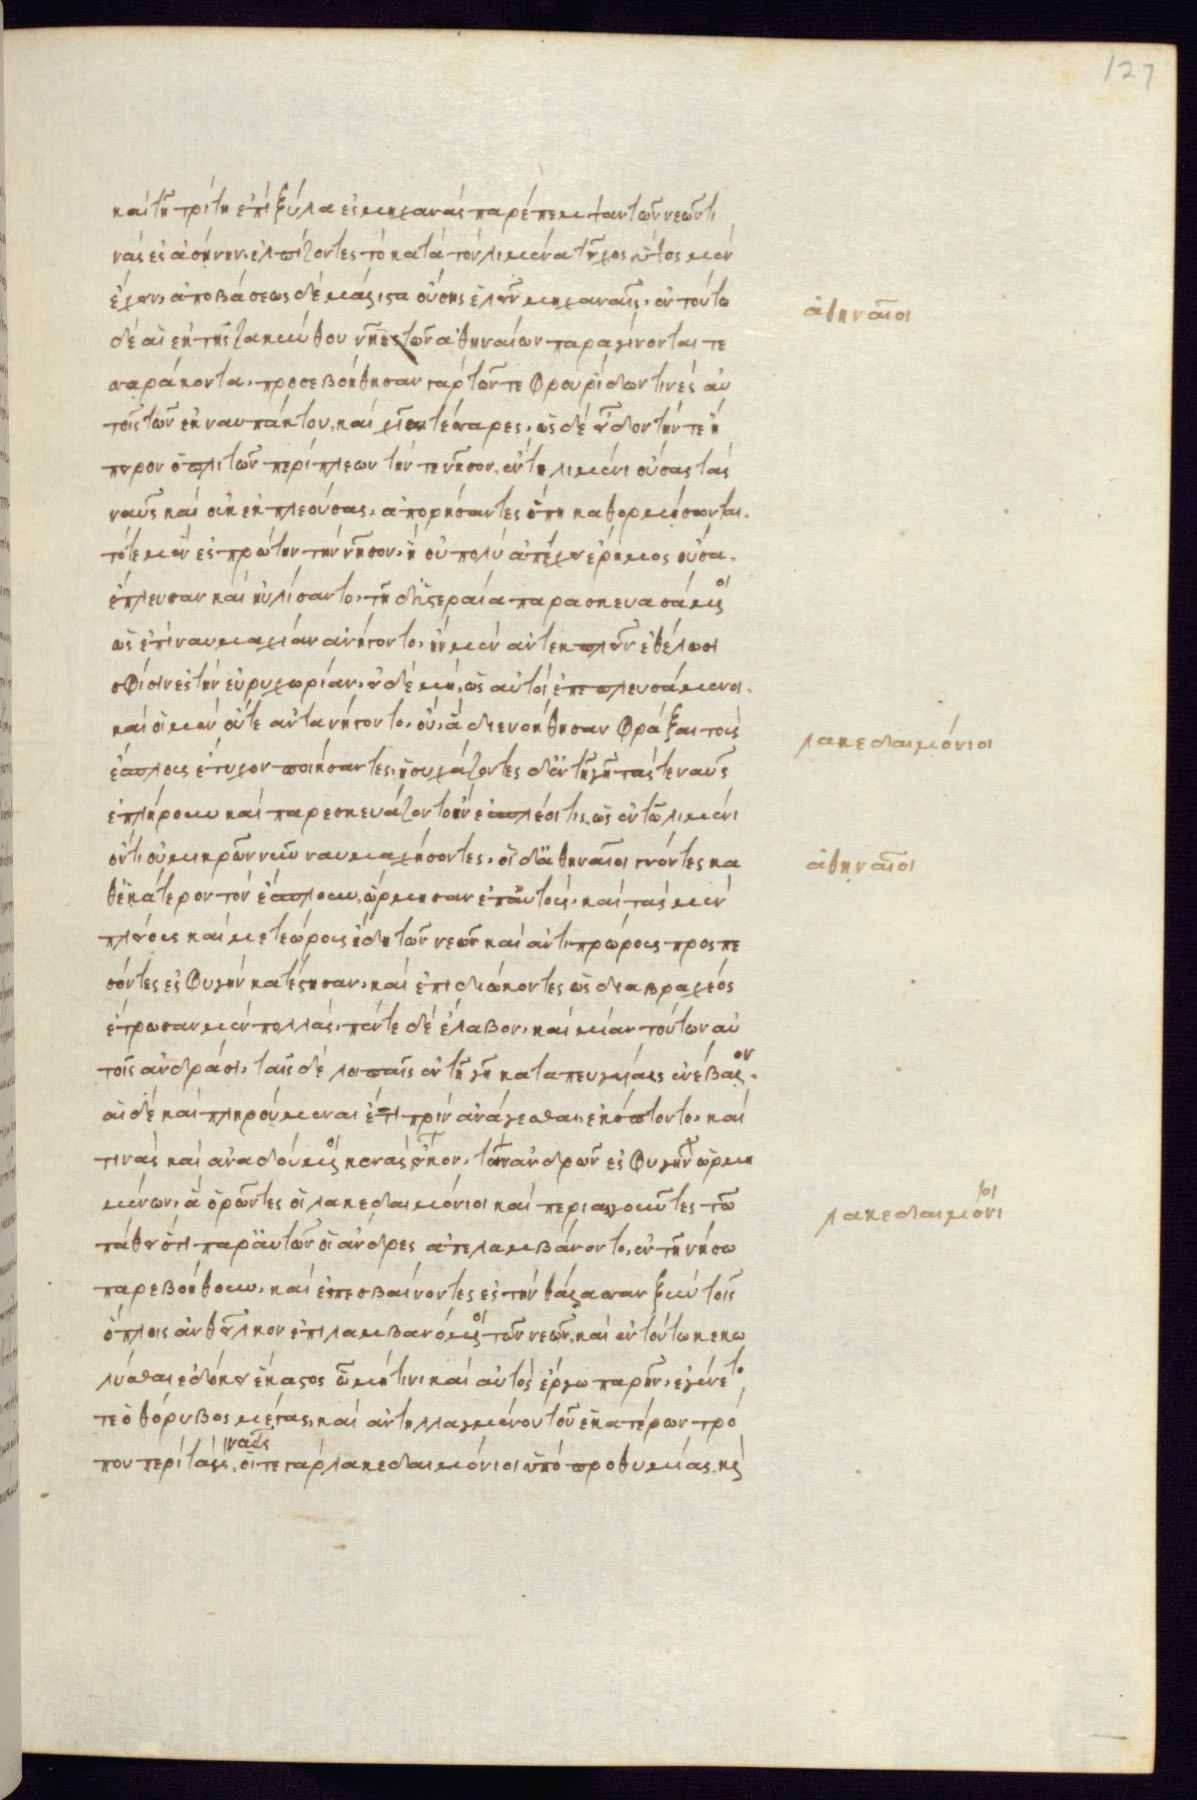 127
καὶ τῆ τρίτη ἐπὶ ξύλα ἐς μηχανὰς παρέπεμψαν τῶν νεῶν τι
νὰς ἐς ἀσίνην, ἐλπίζοντες τὸ κατὰ τὸν λιμένα τεῖχος ὕψος μὲν
ἔχειν, ἀποβάσεως δὲ μάλιστα οὔσης ἑλεῖν μηχαναῖς, ἐν τούτω
ἀθηναῖοι
δὲ αἱ ἐκ τῆς ζακύνθου νῆες τῶν ἀθηναίων παραγίνονται τε
σσαράκοντα, προσεβοήθησαν γὰρ τῶν τε φρουρίδων τινὲς αὐ
τοῖς τῶν ἐκ ναυπάκτου, καὶ χῖαι τέσσαρες, ὡς δὲ εἶδον τήν τε ἤ
πειρον ὁπλιτῶν περίπλεων τήν τε νῆσον, ἔν τε λιμένι οὔσας τὰς
ναῦς καὶ οὐκ ἐκπλεούσας, ἀπορήσαντες ὅπη καθορμίσωνται,
τότε μὲν ἐς πρώτην τὴν νῆσον, ἣ οὐ πολὺ ἀπέχει ἐρῆμος οὖσα,
ἔπλευσαν καὶ ηὐλίσαντο, τῆ δ' ὑστεραία παρασκευασάμενοι
ὡς ἐπὶ ναυμαχίαν ἀνήγοντο, ἢν μὲν ἀντεκπλεῖν ἐθέλωσι
σφίσιν ἐς τὴν εὐρυχωρίαν, εἰ δὲ μὴ, ὡς αὐτοὶ ἐπεσπλευσόμενοι,
καὶ οἱ μὲν οὔτε ἀντανήγοντο, οὔθ' ἃ διενοήθησαν φράξαι τοὺς
λακεδαιμόνιοι
ἔσπλους ἔτυχον ποιήσαντες, ἡσυχάζοντες δ' ἐν τῆ γῆ τάς τε ναῦς
ἐπλήρουν καὶ παρεσκευάζοντο ἢν ἐσπλέη τις, ὡς ἐν τῶ λιμένι
ὄντι οὐ μικρῶ ναυμαχήσοντες, οἱ δ' ἀθηναῖοι γνόντες κα
ἀθηναῖοι
θ' ἑκάτερον τὸν ἔσπλουν, ὥρμησαν ἐπ' αὐτοὺς, καὶ τὰς μὲν
πλείους καὶ μετεώρους ἤδη τῶν νεῶν καὶ ἀντιπρώρους προσπε
σόντες ἐς φυγὴν κατέστησαν, καὶ ἐπιδιώκοντες ὡς διὰ βραχέος
ἔτρωσαν μὲν πολλὰς, πέντε δὲ ἔλαβον, καὶ μίαν τούτων αὐ
τοῖς ἀνδράσι, ταῖς δὲ λοιπαῖς ἐν τῆ γῆ καταπεφευγυίαις ἐνέβαλλον,
αἱ δὲ καὶ πληρούμεναι ἔτι πρὶν ἀνάγεσθαι, ἐκόπτοντο, καὶ
τινὰς καὶ ἀναδούμενοι κενὰς εἷλκον, τῶν ἀνδρῶν ἐς φυγὴν ὡρμη
μένων, ἃ ὁρῶντες οἱ λακεδαιμόνιοι καὶ περιαλγοῦντες τῶ
λακεδαιμόνιοι
πάθει ὅτι παρ' αὐτῶν οἱ ἄνδρες ἀπελαμβάνοντο, ἐν τῆ νήσω
παρεβοήθουν, καὶ ἐπεσβαίνοντες ἐς τὴν θάλασσαν ξὺν τοῖς
ὅπλοις ἀνθεῖλκον ἐπιλαμβανόμενοι τῶν νεῶν, καὶ ἐν τούτω κεκω
λύσθαι ἐδόκει ἕκαστος ὧ μή τινι καὶ αὐτὸς ἔργω παρῆν, ἐγένετο
τε ὁ θόρυβος μέγας, καὶ ἀντηλλαγμένου τοῦ ἑκατέρων τρό
που περὶ τὰς ναῦς, οἵ τε γὰρ λακεδαιμόνιοι ὑπὸ προθυμίας κὶ